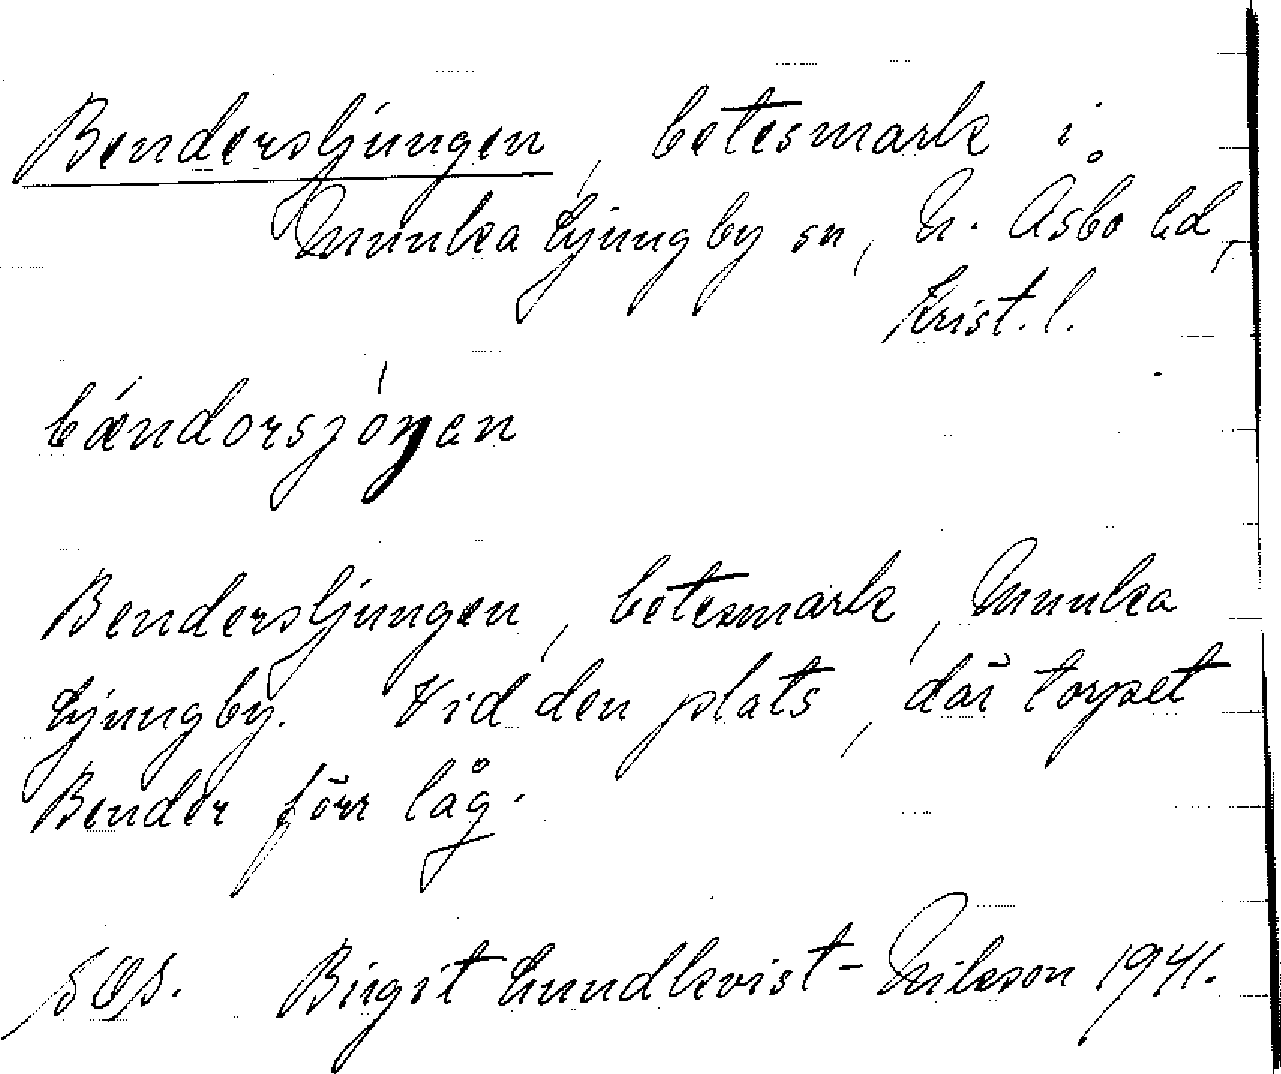 Bendersljungen, betesmark i
Munka Ljungby sn, N. Åsbo hd,
Krist. l.
bǽndorsjóŋan
Bendersljungen, betesmark, Munka
Ljungby. Vid den plats, där torpet
Bender förr låg.
Birgit Lundkvist-Nilsson 1941.